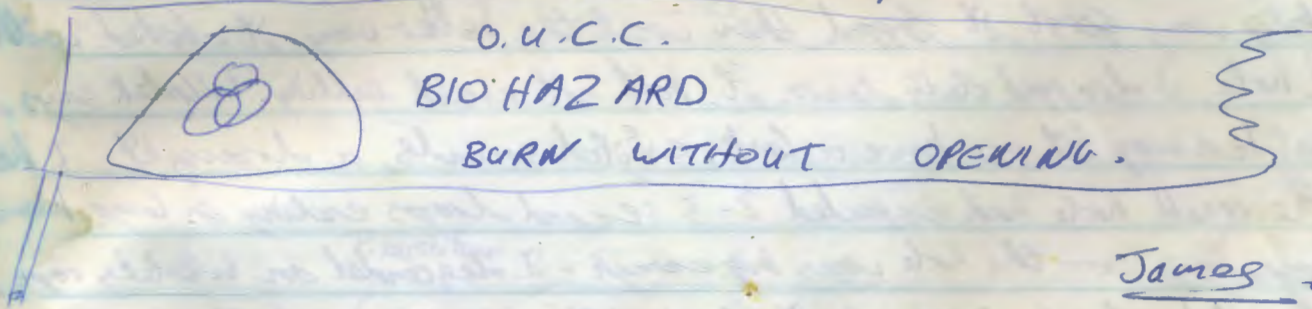 O.U.C.C.
BIO HAZARD
BURN WITHOUT OPENING.
James.